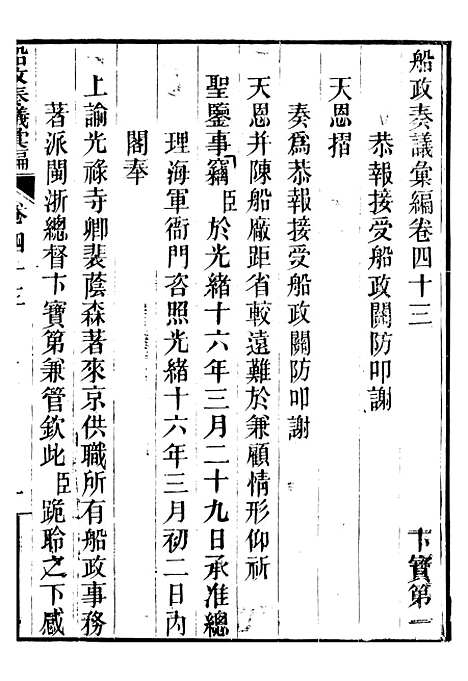 船政奏議彙編卷四十三
恭報接受船政關防叩謝　卞寶第一
天恩摺
奏爲恭報接受船政關防叩謝
天恩并陳船廠距省較遠難於兼顧情形仰祈
聖鑒事竊臣於光緒十六年三月二十九日承准總
理海軍衙門咨照光緒十六年三月初二日內
閣奉
上諭光祿寺卿裴蔭森著來京供職所有船政事務
著派閩浙總督卞寶第兼管欽此臣跪聆之下感
船政奏議彙編 卷四十三 一